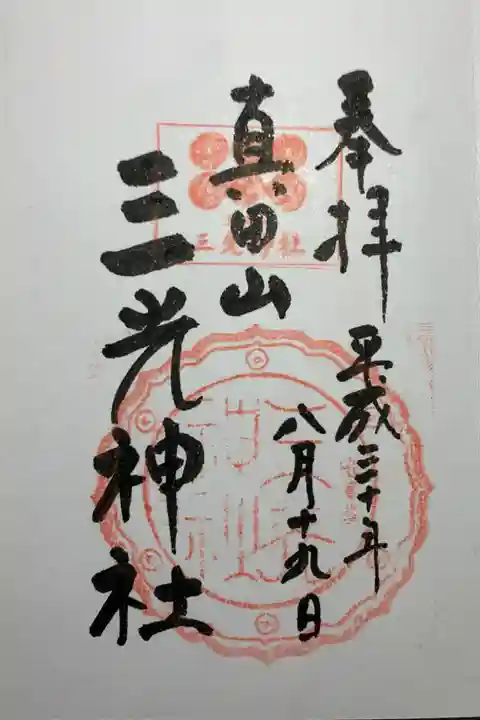 奉拝
平成三十年
八月十九日
真田山
三光神社
三光神社